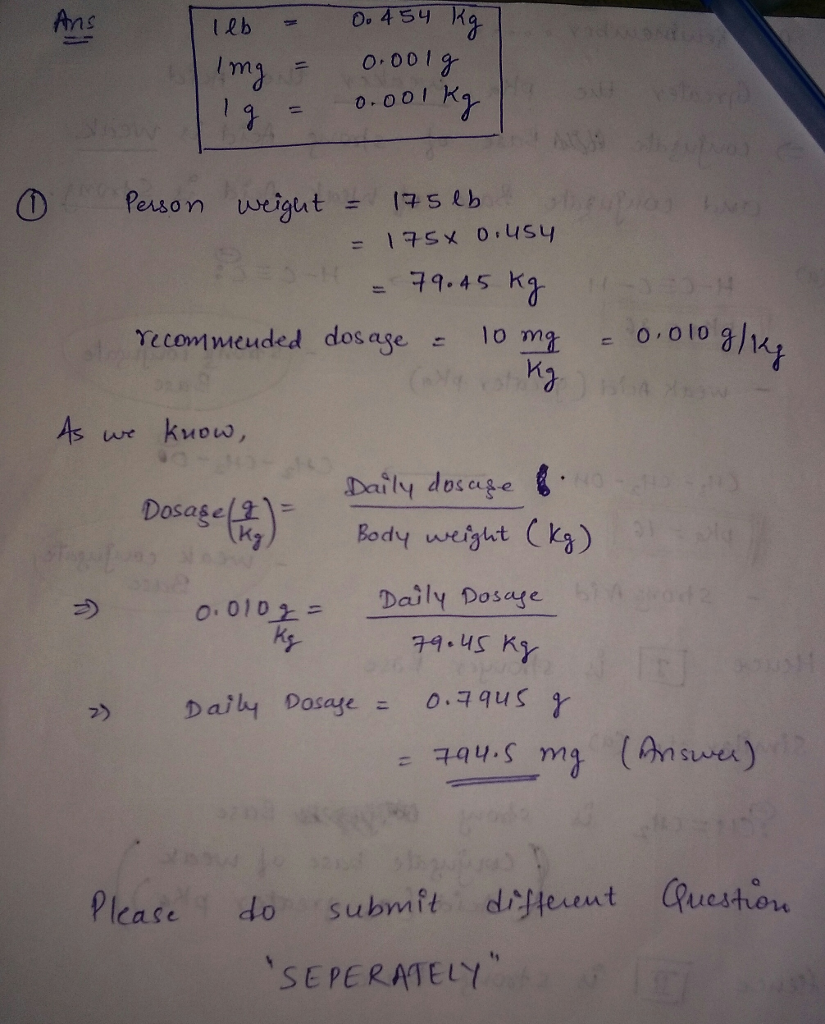 Ans
1 lb = 0.454 Kg
1mg = 0.001g
1g = 0.001 Kg
① Person weigut = 175 lb
= 175x 0.454
= 79.45 Kg
recommended dosage = 10 mg/Kg = 0.010 g/Kg
As we know,
Dosage(g/Kg) = Daily dosage / Body weight (Kg)
⇒ 0.010 g/Kg = Daily Dosage / 79.45 Kg
⇒ Daily Dosage = 0.7945 g
= 794.5 mg (Answer)
Please do submit different Question
"SEPERATELY"